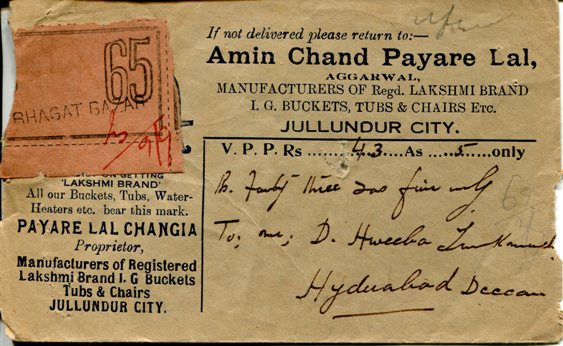 If not delivered please return to:—
Amin Chand Payare Lal,
AGGARWAL,
MANUFACTURERS OF Regd. LAKSHMI BRAND
I. G. BUCKETS, TUBS & CHAIRS Etc.
JULLUNDUR CITY.
65
BHAGAT BAZAR
ON GETTING
'LAKSHMI BRAND'
All our Buckets, Tubs, Water-
Heaters etc. bear this mark.
PAYARE LAL CHANGIA
Proprietor,
Manufacturers of Registered
Lakshmi Brand I. G Buckets
Tubs & Chairs
JULLUNDUR CITY.
V. P. P. Rs ........43....As ....5......only
Rs. Forty three as five only
To, D. Hweeba
Hyderabad Deccan